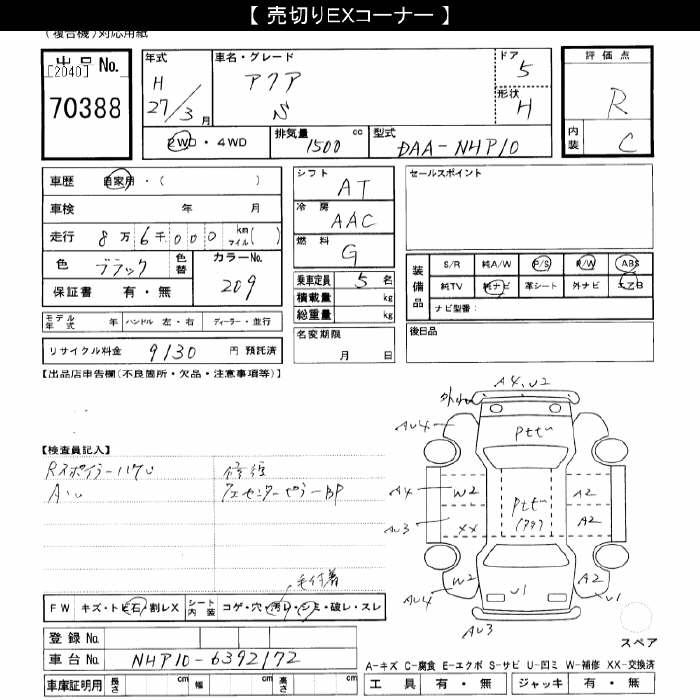 【 売切りEXコーナー 】
(複合機)対応用紙
出品No.
[2040]
70388
年式
H
27/3月
車名・グレード
アクア
S
ドア
5
形状
H
評価点
R
内装
C
2WD・4WD
排気量 1500 cc
型式 DAA-NHP10
車歴 自家用・( )
車検 年 月
走行 8万6千000 km マイル( )
色 ブラック
色替
カラーNo.
209
保証書 有・無
シフト
AT
冷房
AAC
燃料
G
乗車定員 5 名
積載量 kg
総重量 kg
名変期限
月 日
セールスポイント
装備品
S/R 純A/W P/S P/W ABS
純TV 純ナビ 革シート 外ナビ エアB
ナビ型番:
後日品
モデル年式 年 ハンドル 左・右 ディーラー・並行
リサイクル料金 9130 円 預託済
【出品店申告欄(不良箇所・欠品・注意事項等)】
【検査員記入】
RスポイラーハゲU
AU
修復
フェセンターピラーBP
毛付着
FW キズ・トビ石・割レX
シート内装 コゲ・穴・汚レ・シミ・破レ・スレ
登録No.
車台No. NHP10-6392172
車庫証明用 長さ cm 幅 cm 高さ cm
A4、U2
AU4
Pもせ
A4
W2
A2
Pもせ
(アタ)
AU3
XX
A2
AU4
W2
U1
A2
U1
AU3
スペア
A-キズ C-腐食 E-エクボ S-サビ U-凹ミ W-補修 XX-交換済
工具 有・無 ジャッキ 有・無